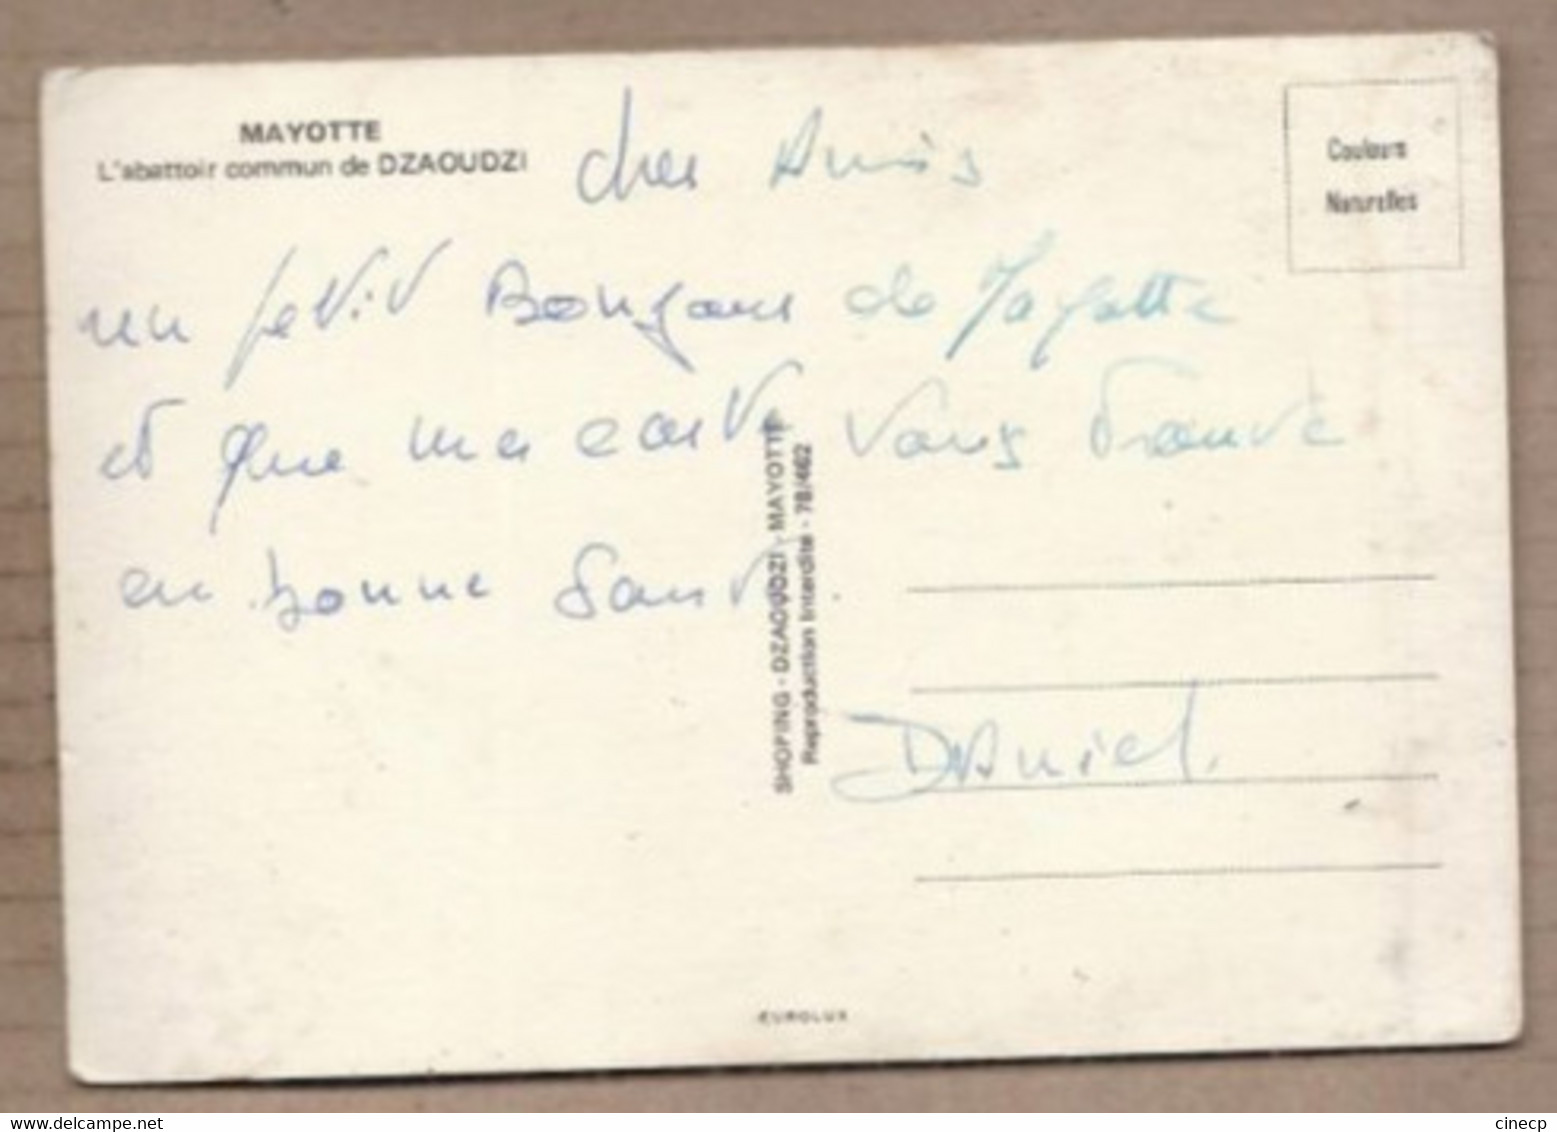 MAYOTTE
L'abattoir commun de DZAOUDZI
Couleurs
Naturelles
chers Amis
un petit Bonjour de Mayotte
et que ma carte vous trouve
en bonne Santé.
SHOPING - DZAOUDZI - MAYOTTE
Reproduction Interdite - 78/462
Daniel.
EUROLUX
www.delcampe.net
cinecp